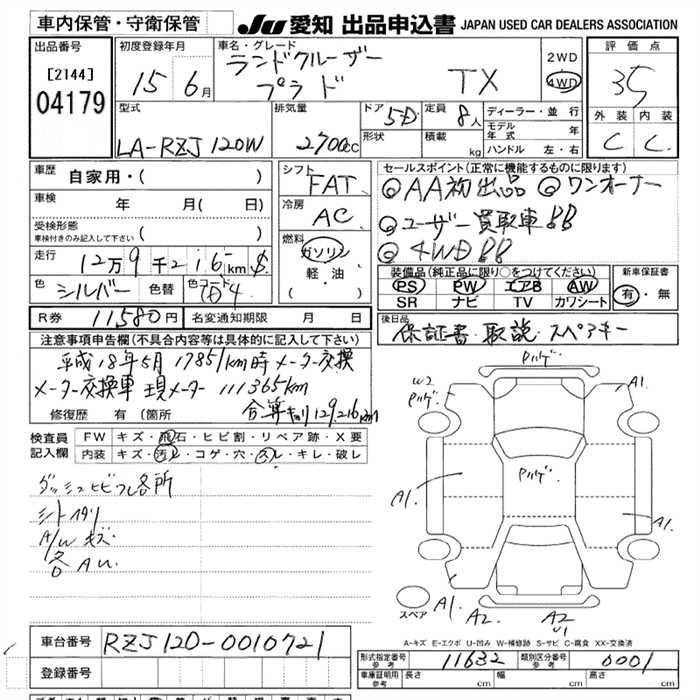 車内保管・守衛保管 JU 愛知 出品申込書 JAPAN USED CAR DEALERS ASSOCIATION
出品番号
[2144]
04179
初度登録年月
15年 6月
車名・グレード
ランドクルーザー
プラド TX
2WD
4WD
評価点
3.5
外装 内装
C C
型式
LA-RZJ120W
排気量
2700cc
ドア 5D
形状
定員 8人
積載 kg
ディーラー・並行
モデル年式 年
ハンドル 左・右
車歴
自家用・( )
車検
年 月 ( 日)
受検形態
車検付きのみ記入して下さい ( )
走行
12万9千216km
色 シルバー 色替 色コード 1D4
R券 11,580円 名変通知期限 月 日
シフト
FAT
冷房
AC
燃料
ガソリン
軽油
( )
セールスポイント(正常に機能するものに限ります)
◎AA初出品 ◎ワンオーナー
◎ユーザー買取車!!
◎4WD!!
装備品(純正品に限り○をつけてください)
PS PW エアB AW
SR ナビ TV カワシート
新車保証書
有・無
後日品
保証書・取説・スペアキー
注意事項申告欄(不具合内容等は具体的に記入して下さい)
平成18年5月 17851km時メーター交換
メーター交換車 現メーター111365km
合算 129,216km
修復歴 有 (箇所
検査員記入欄
FW キズ・飛石・ヒビ割・リペア跡・X要
内装 キズ・汚レ・コゲ・穴・スレ・キレ・破レ
ダッシュヒビワレ各所
シート
A/Wキズ
各AU
P.ハゲ
W2
P.ハゲ
A1.
P.ハゲ
A1.
A1.
スペア
A1.
A2.
A2
U1
A-キズ E-エクボ U-凹み W-補修跡 S-サビ C-腐食 XX-交換済
車台番号 RZJ120-0010721
登録番号
形式指定番号 参考 11632 類別区分番号 参考 0001
車庫証明用 参考 長さ cm 幅 cm 高さ cm